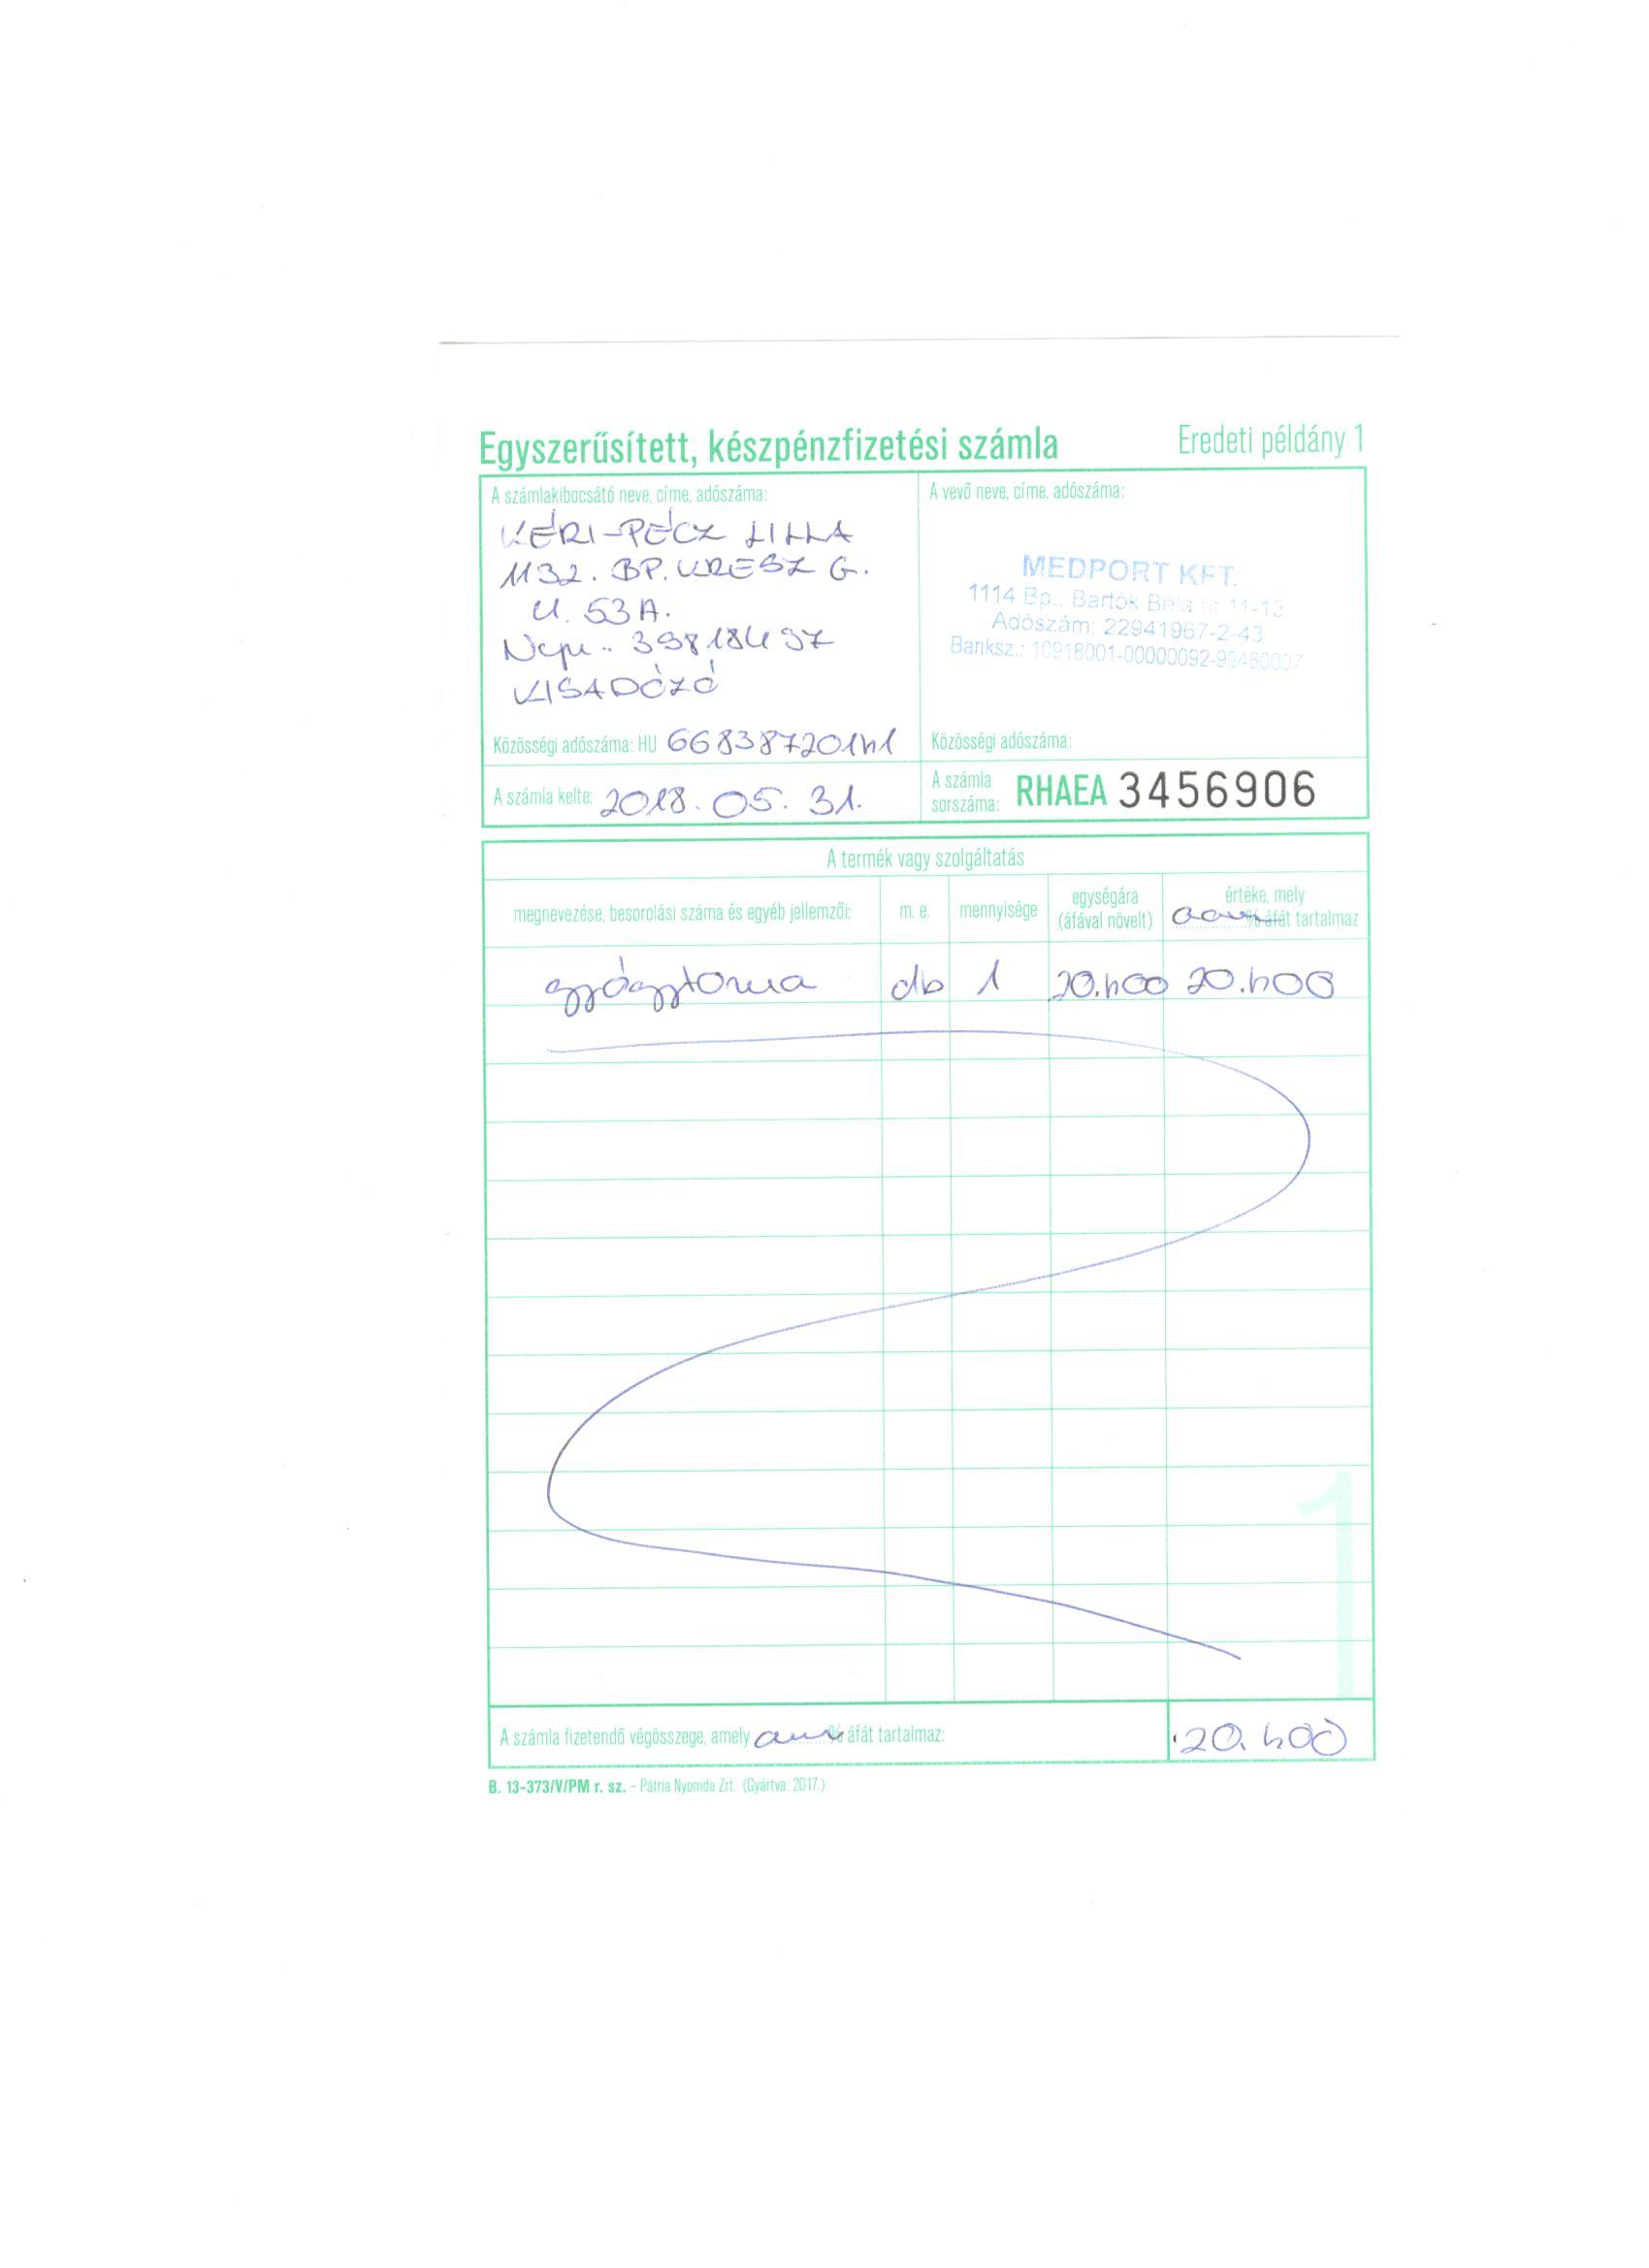 Egyszerűsített, készpénzfizetési számla Eredeti példány 1
A számlakibocsátó neve, címe, adószáma:
KÉRI-PÉCZ LILLA
1132. BP. KRESZ G.
U. 53A.
KISADÓZÓ
Közösségi adószáma: HU 66838720141
A vevő neve, címe, adószáma:
MEDPORT KFT.
1114 Bp., Bartók Béla út 11-13
Adószám: 22941967-2-43
Banksz.: 10918001-00000092-99480007
Közösségi adószáma:
A számla kelte: 2018. 05. 31.
A számla sorszáma: RHAEA 3456906
A termék vagy szolgáltatás
megnevezése, besorolási száma és egyéb jellemzői: m. e. mennyisége egységára (áfával növelt) értéke, mely % áfát tartalmaz
gyógytorna db 1 20.400 20.400
1
A számla fizetendő végösszege, amely % áfát tartalmaz: 20.400
B. 13-373/V/PM r. sz. – Pátria Nyomda Zrt. (Gyártva: 2017.)